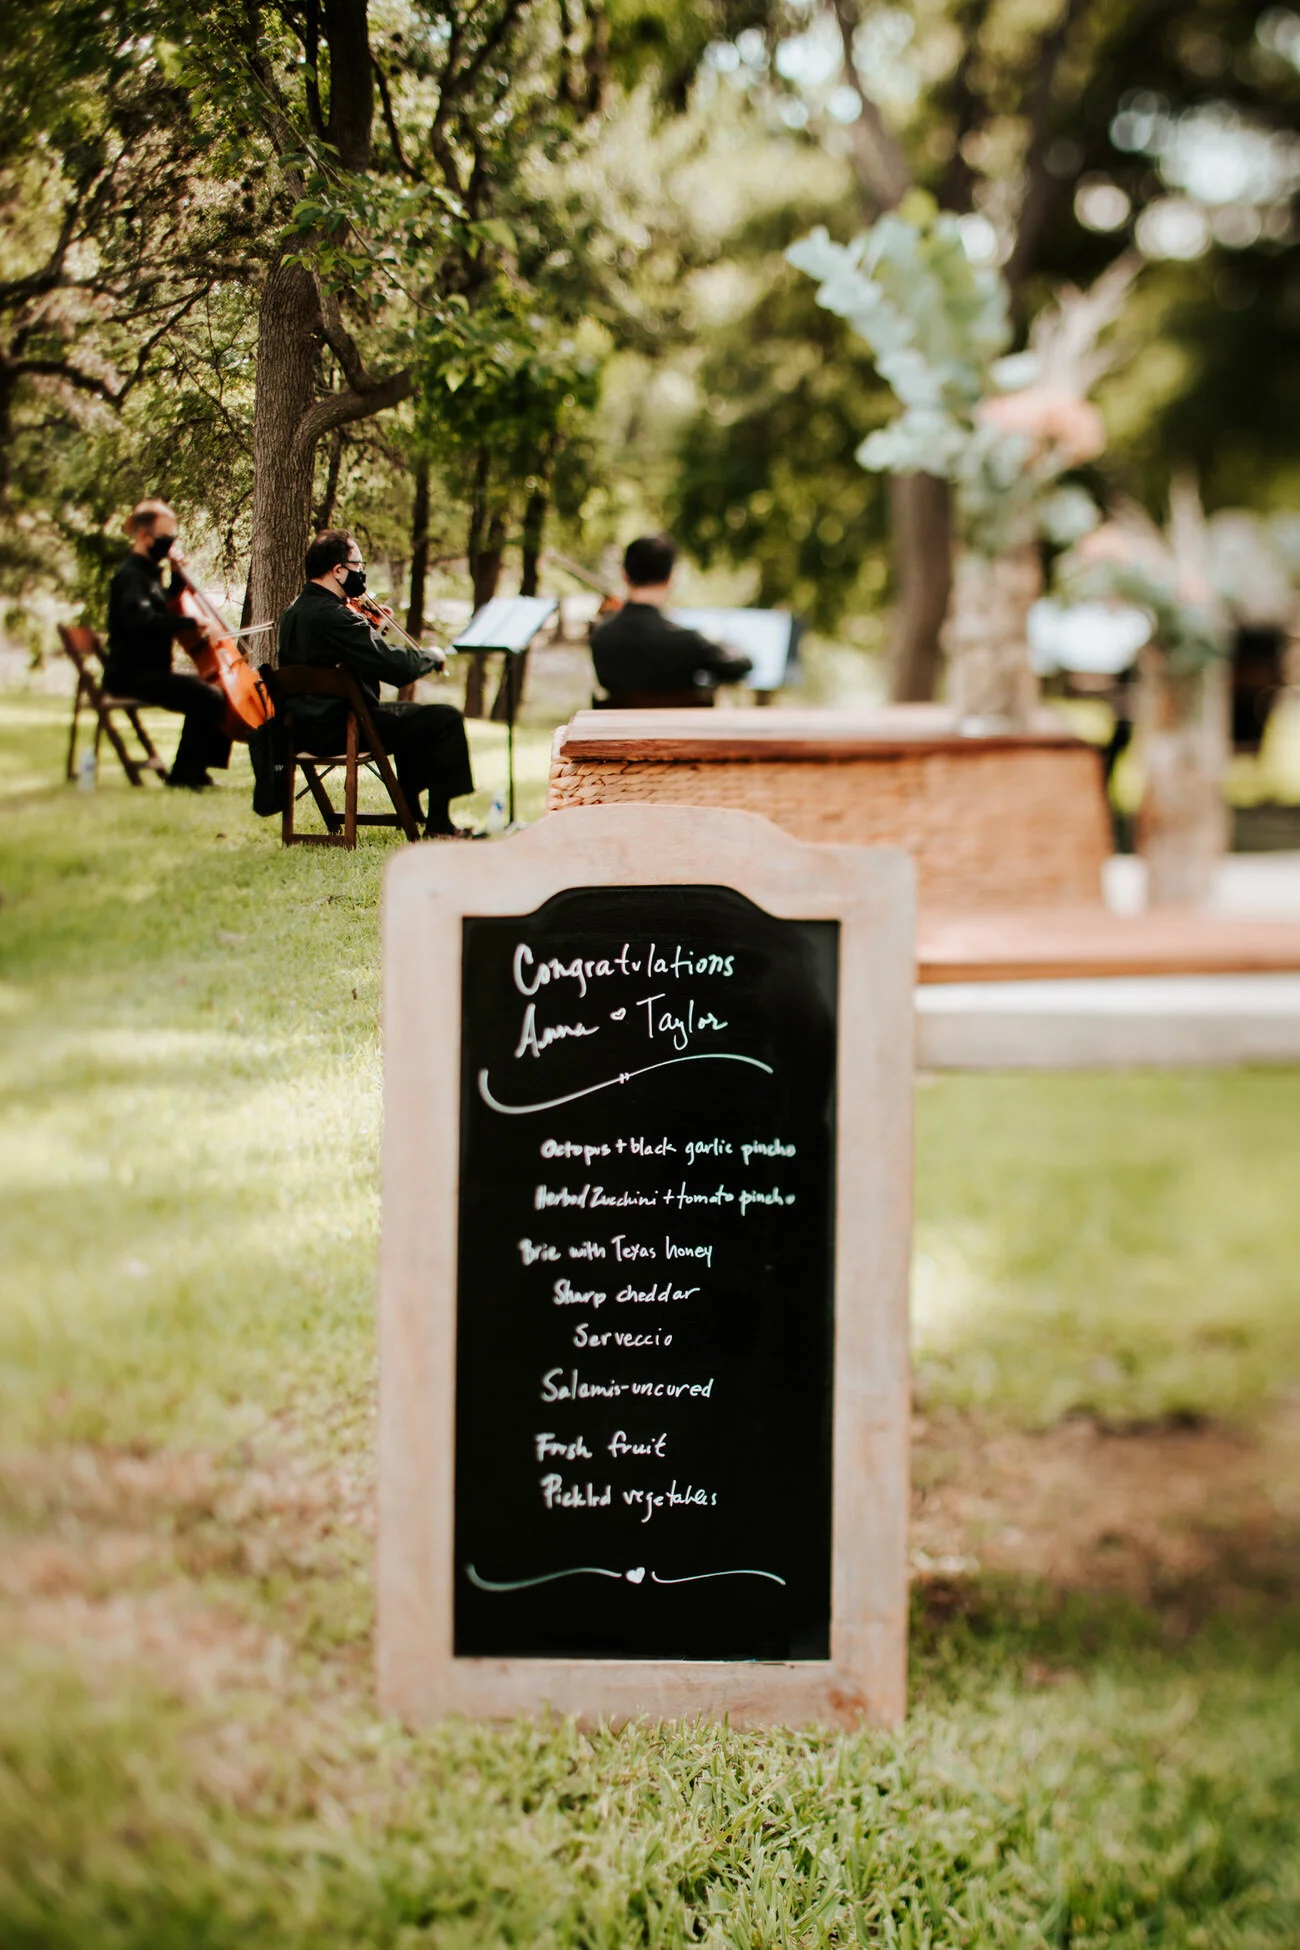 Congratulations
Anna Taylor
Octopus + black garlic pincho
Herbed Zucchini + tomato pincho
Brie with Texas honey
Sharp cheddar
Serveccio
Salamis-uncured
Fresh fruit
Pickled vegetables